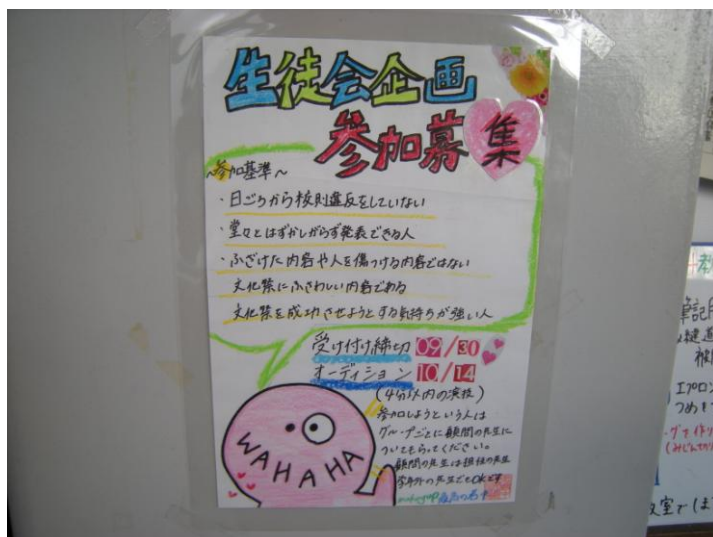 生徒会企画
参加募集
～参加基準～
・日ごろから校則違反をしていない
・堂々とはずかしがらず発表できる人
・ふざけた内容や人を傷つける内容ではない
文化祭にふさわしい内容である
文化祭を成功させようとする気持ちが強い人
受け付け締切 09/30
オーディション 10/14
(4分以内の演技)
参加しようという人は
グループごとに顧問の先生に
ついてもらってください。
顧問の先生は担任の先生
学年外の先生でもOKです
WAHAHA
筆記用
エプロン
つめを
(みじんぎり
教室で(ま